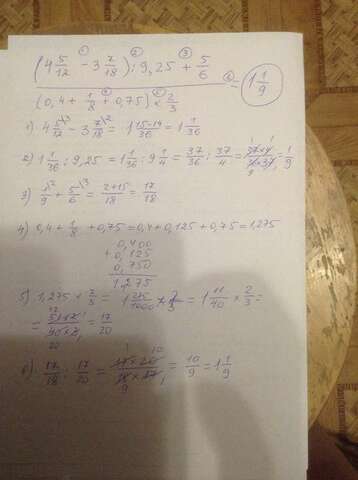 ① ② ③
(4 5/12 - 3 7/18) : 9,25 + 5/6
④ ⑤ ⑥ = 1 1/9
(0,4 + 1/8 + 0,75) × 2/3
1) 4 5/12 \3 - 3 7/18 \2 = 1 15-14/36 = 1 1/36
2) 1 1/36 : 9,25 = 1 1/36 : 9 1/4 = 37/36 : 37/4 = 37×4/36×37 = 1/9
3) 1/9 \2 + 5/6 \3 = 2+15/18 = 17/18
4) 0,4 + 1/8 + 0,75 = 0,4 + 0,125 + 0,75 = 1,275
0,400
+ 0,125
0,750
1,275
5) 1,275 × 2/3 = 1 275/1000 × 2/3 = 1 11/40 × 2/3 =
= 51×2/40×3 = 17/20
6) 17/18 : 17/20 = 17×20/18×17 = 10/9 = 1 1/9